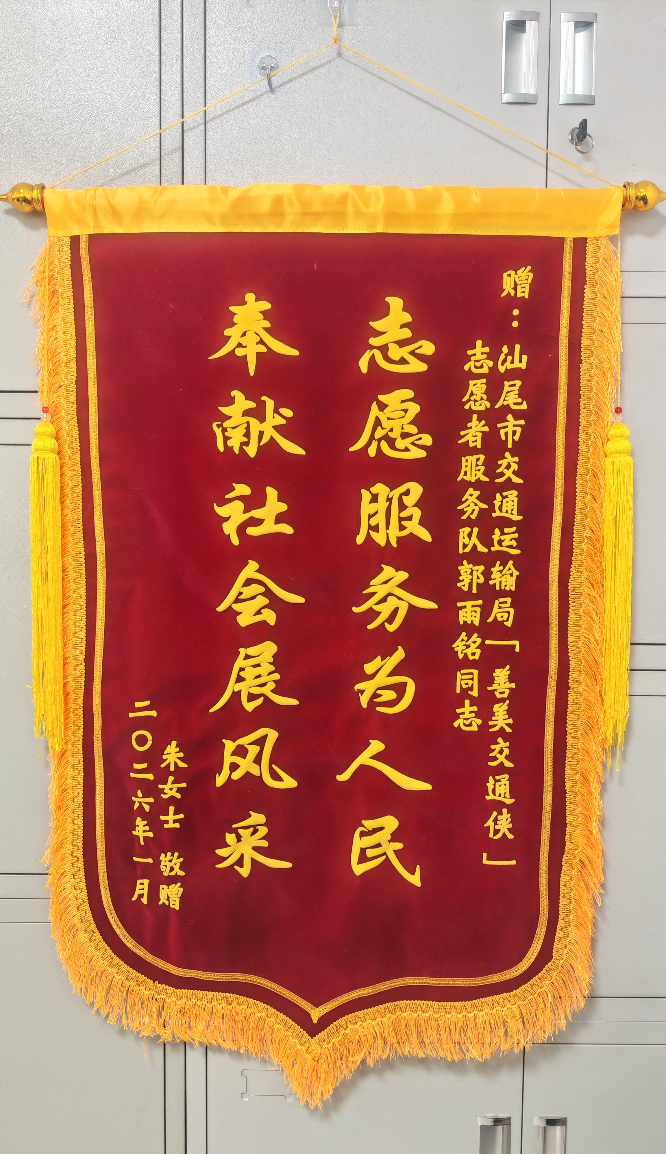 赠：汕尾市交通运输局「善美交通侠」
志愿者服务队郭雨铭同志
志愿服务为人民
奉献社会展风采
朱女士 敬赠
二〇二六年一月